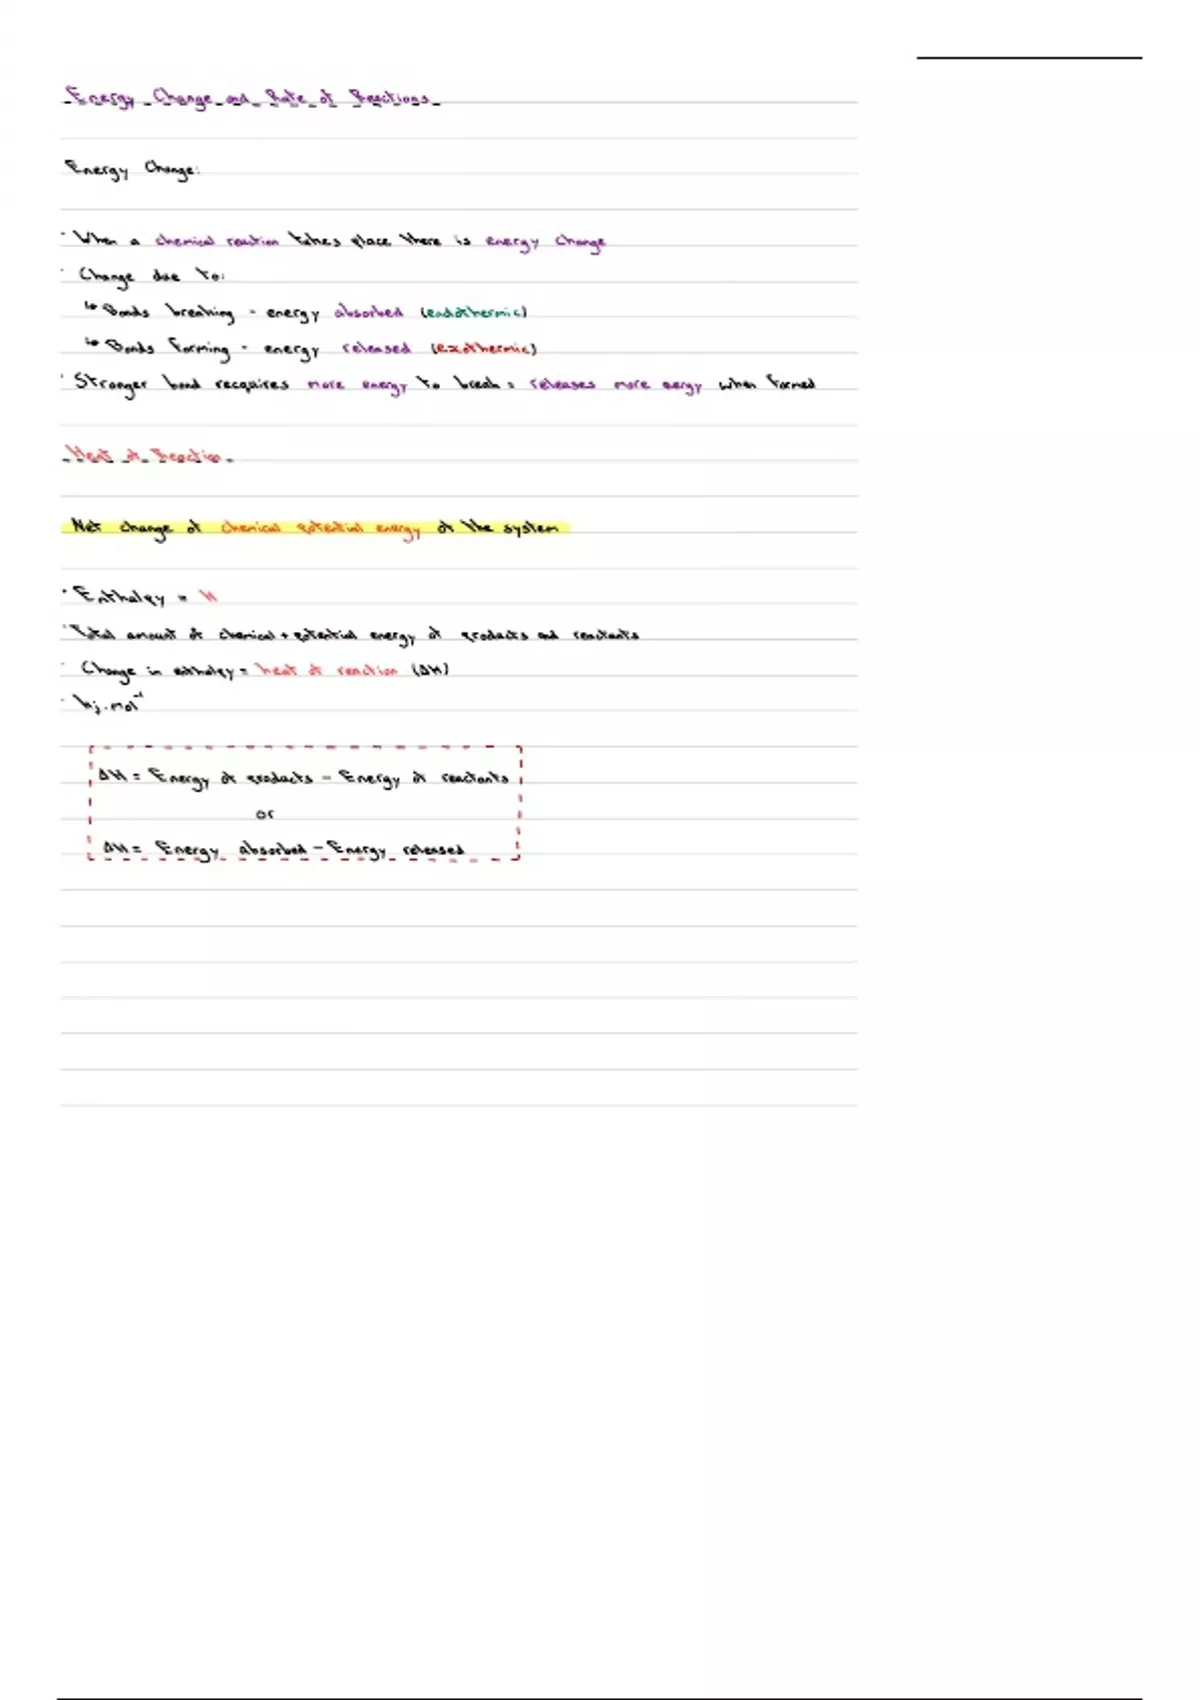 Energy Change and Rate of Reactions
Energy Change:
· When a chemical reaction takes place there is energy change
· Change due to:
↳ Bonds breaking - energy absorbed (endothermic)
↳ Bonds forming - energy released (exothermic)
· Stronger bond recquires more energy to break = releases more energy when formed
Heat of Reaction
Net change of chemical potential energy of the system
· Enthalpy = H
· Total amount of chemical + potential energy of products and reactants
· Change in enthalpy = heat of reaction (ΔH)
· kj.mol⁻¹
ΔH = Energy of products - Energy of reactants
or
ΔH = Energy absorbed - Energy released